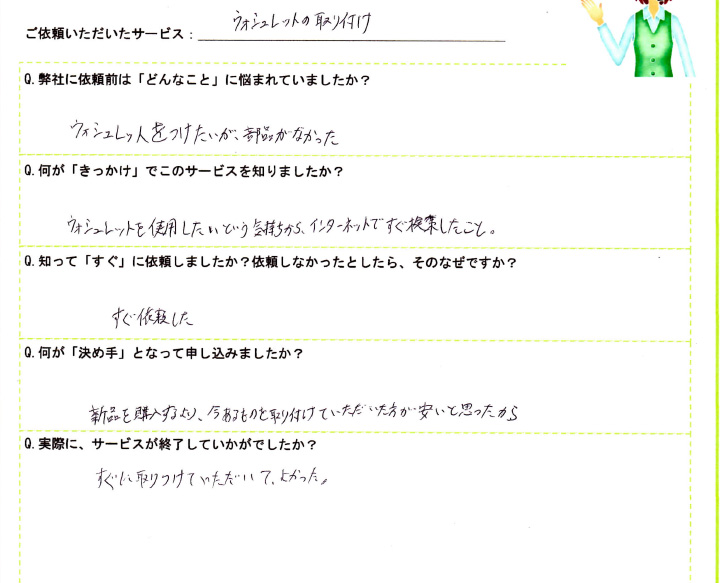 ご依頼いただいたサービス：ウォシュレットの取り付け
Q.弊社に依頼前は「どんなこと」に悩まれていましたか？
ウォシュレットをつけたいが、部品がなかった
Q.何が「きっかけ」でこのサービスを知りましたか？
ウォシュレットを使用したいという気持ちから、インターネットですぐ検索したこと。
Q.知って「すぐ」に依頼しましたか？依頼しなかったとしたら、そのなぜですか？
すぐ依頼した
Q.何が「決め手」となって申し込みましたか？
新品を購入するより、今あるものを取り付けていただいた方が安いと思ったから
Q.実際に、サービスが終了していかがでしたか？
すぐに取りつけていただいて、よかった。